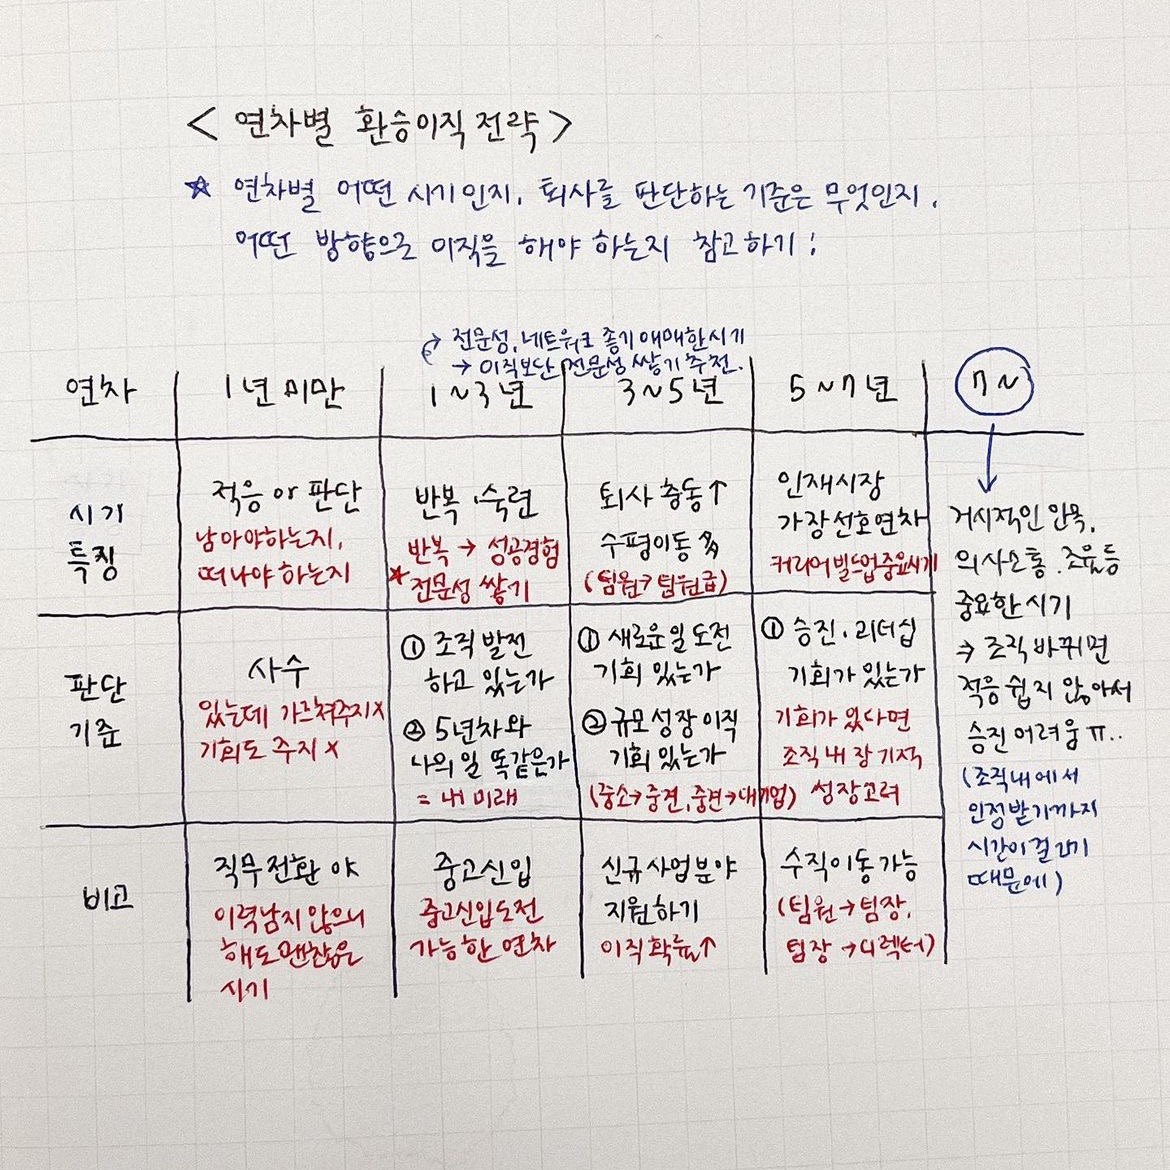 < 연차별 환승이직 전략 >
☆ 연차별 어떤 시기인지, 퇴사를 판단하는 기준은 무엇인지,
어떤 방향으로 이직을 해야 하는지 참고하기!
→ 전문성, 네트워크 좋기 애매한 시기
→ 이직보단 전문성 쌓기 추천.
연차
1년 미만
1~3년
3~5년
5~7년
7~
시기
특징
적응 or 판단
남아야하는지,
떠나야 하는지
반복·숙련
반복 → 성공경험
★전문성 쌓기
퇴사 충동↑
수평이동 多
(팀원→팀원급)
인재시장
가장 선호연차
커리어 빌드업 중요시기
판단
기준
사수
있는데 가르쳐주지x
기회도 주지 x
① 조직 발전
하고 있는가
② 5년차와
나의 일 똑같은가
= 내 미래
① 새로운 일 도전
기회 있는가
② 규모 성장 이직
기회 있는가
(중소→중견, 중견→대기업)
① 승진·리더십
기회가 있는가
기회가 있다면
조직 내 장기적
성장고려
비고
직무전환 야
이력남지 않으니
해도 괜찮은
시기
중고신입
중고신입도전
가능한 연차
신규사업분야
지원하기
이직 확률↑
수직이동 가능
(팀원→팀장,
팀장→디렉터)
거시적인 안목,
의사소통, 조율 등
중요한 시기
⇒ 조직 바뀌면
적응 쉽지 않아서
승진 어려움 ㅠ..
(조직내에서
인정받기까지
시간이 걸리기
때문에)